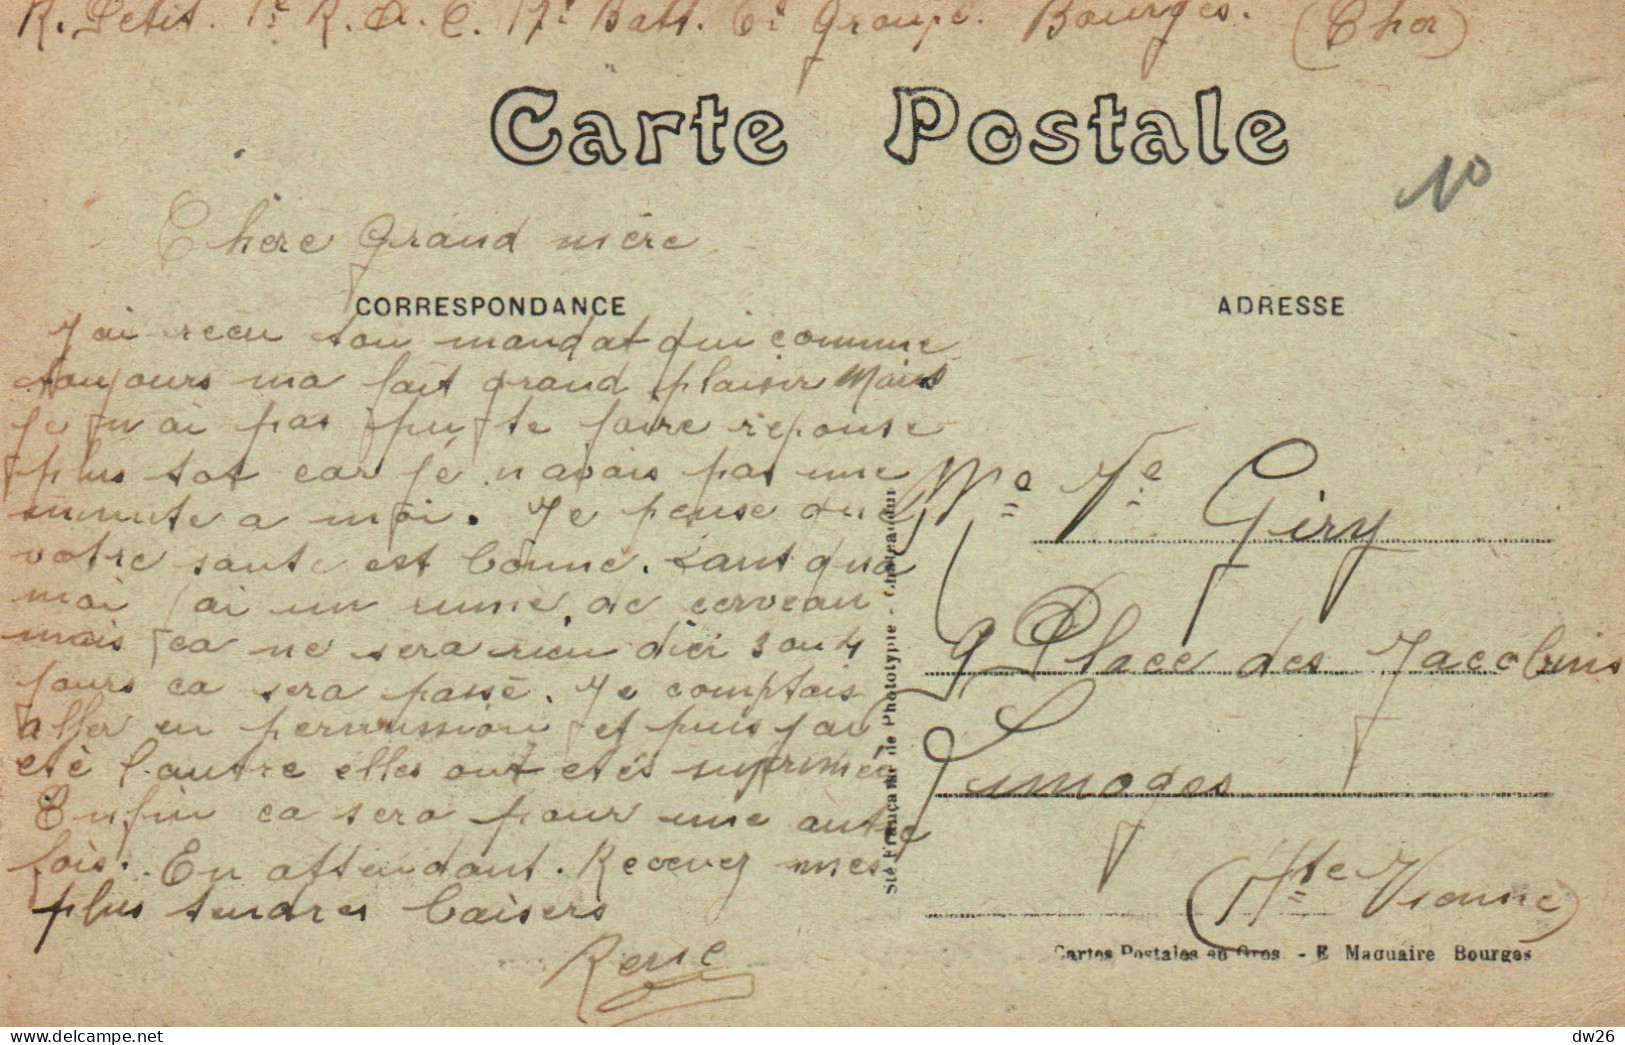 R. Petit. 1e R.A.C. 17e Batt. 6e Groupe. Bourges. (Cher)
Carte Postale
10
Chère Grand mère
CORRESPONDANCE
ADRESSE
J'ai recu ton mandat qui comme
toujours ma fait grand plaisir Mais
je n'ai pas pu te faire reponse
plus tot car je n'avais pas une
minute a moi. Je pense que
votre sante est bonne. Tant qua
moi j'ai un rume de cerveau
mais ca ne sera rien dici 3 ou 4
jours ca sera passé. Je comptais
aller en permission et puis j'ai
eté l'autre elles ont etés suprimée
Enfin ca sera pour une autre
fois. En attendant. Recevez mes
plus tendres baisers
René
Me Ve Giry
9 Place des Jacobins
Limoges
(Hte Vienne)
Sté Française de Phototypie - Châteaudun
Cartes Postales en Gros - E Maquaire Bourges
delcampe.net
dw26